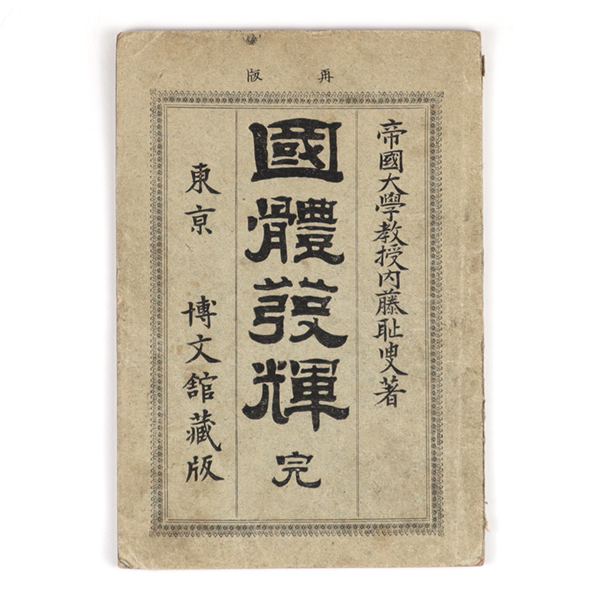 再版
帝國大學教授内藤耻叟著
國體發輝 完
東京 博文舘藏版